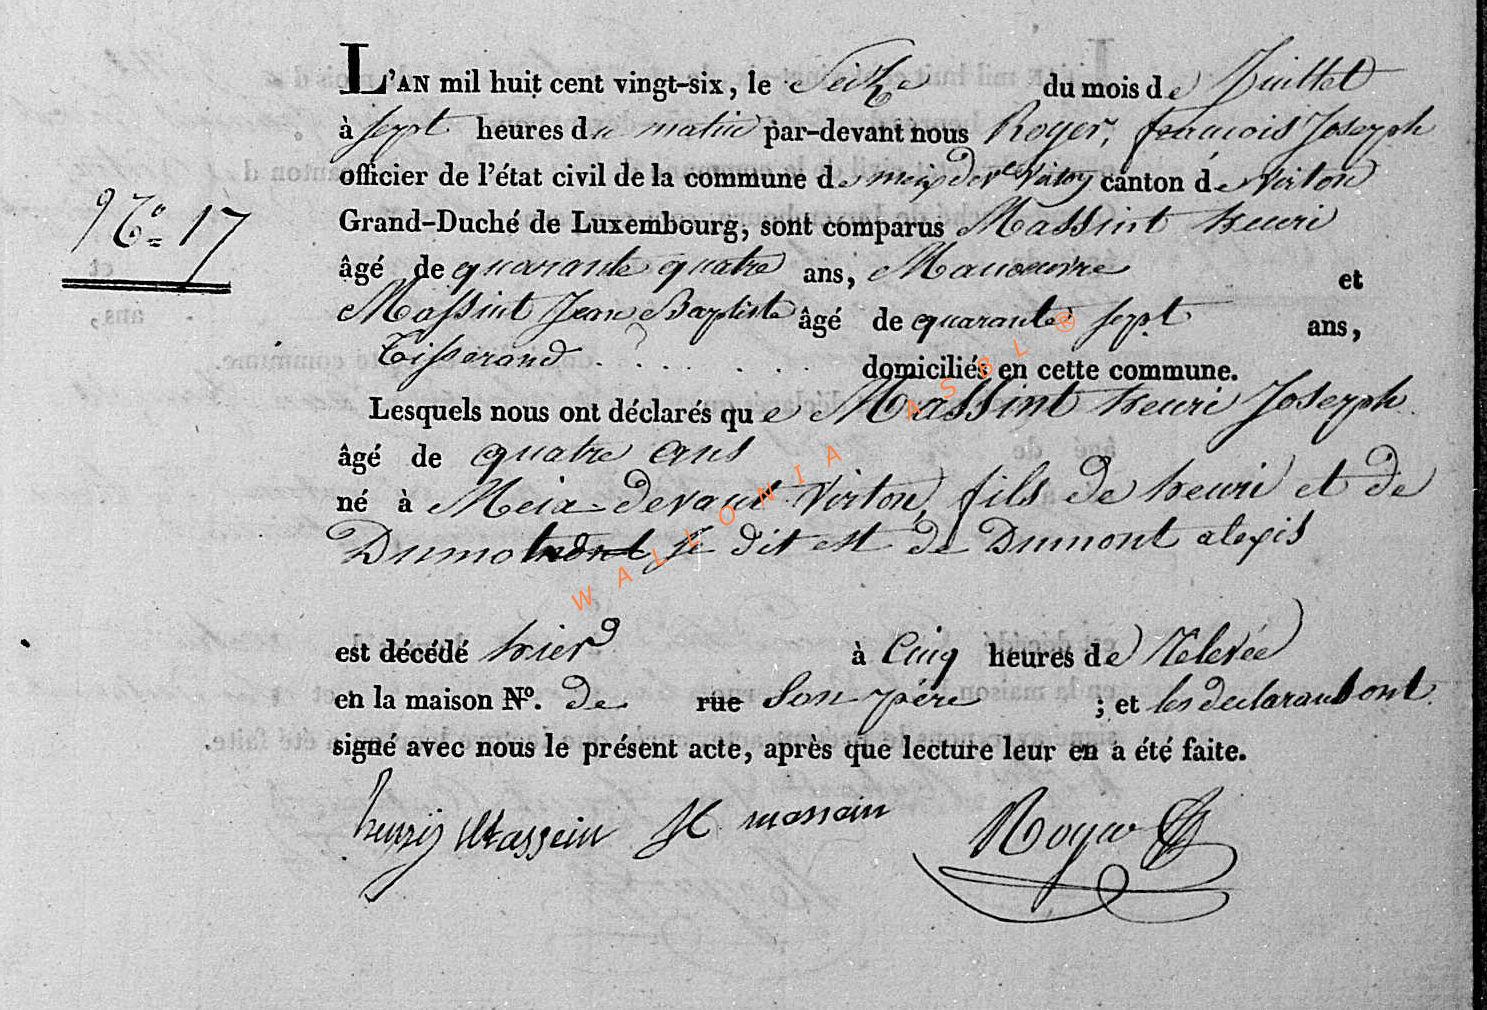 L'AN mil huit cent vingt-six, le Seize du mois de Juillet
à sept heures du matin par-devant nous Royer, francois Joseph
officier de l'état civil de la commune de meix devt Virton canton de Virton
N.º 17
Grand-Duché de Luxembourg, sont comparus Massint henri
âgé de quarante quatre ans, Manoeuvre et
Massint Jean Baptiste âgé de quarante sept ans,
Tisserand . . . . . . domiciliés en cette commune.
Lesquels nous ont déclarés que Massint henri Joseph
âgé de quatre ans
né à Meix-devant Virton, fils de henri et de
Dumo se dit est de Dumont alexis
est décédé hier à Cinq heures de Relevée
en la maison Nº. de rue Son père ; et les declarans ont
signé avec nous le présent acte, après que lecture leur en a été faite.
henrij Massein massain Royer
WALLONIA ASBL ®